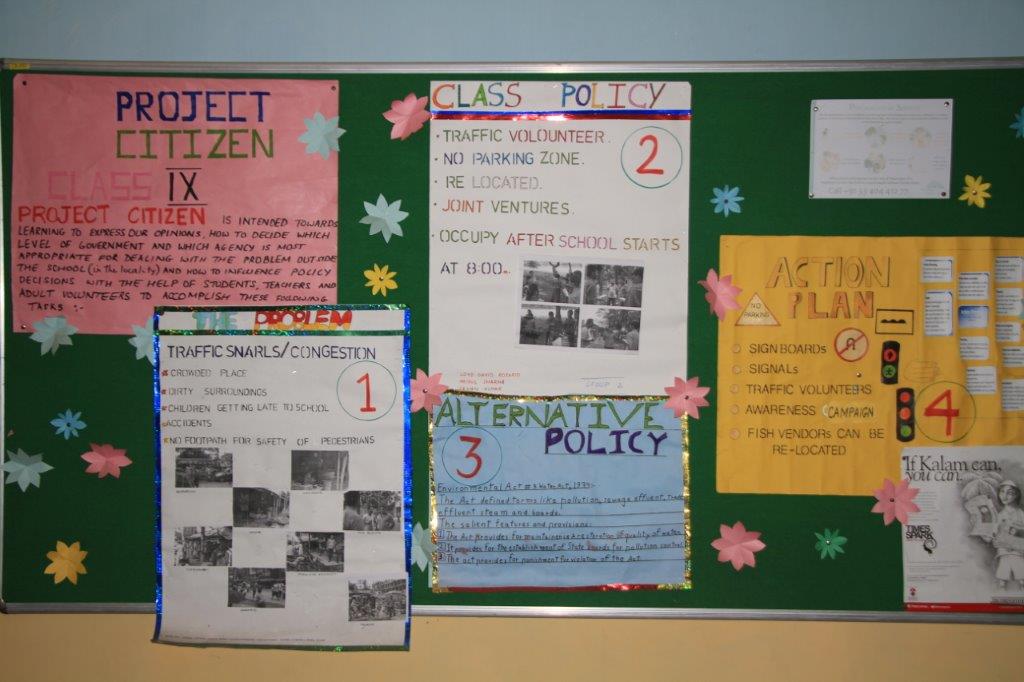 PROJECT
CITIZEN
CLASS IX
PROJECT CITIZEN IS INTENDED TOWARDS
LEARNING TO EXPRESS OUR OPINIONS, HOW TO DECIDE WHICH
LEVEL OF GOVERNMENT AND WHICH AGENCY IS MOST
APPROPRIATE FOR DEALING WITH THE PROBLEM OUTSIDE
THE SCHOOL (in the locality) AND HOW TO INFLUENCE POLICY
DECISIONS WITH THE HELP OF STUDENTS, TEACHERS AND
ADULT VOLUNTEERS TO ACCOMPLISH THESE FOLLOWING
TASKS :-
THE PROBLEM
TRAFFIC SNARLS/CONGESTION
CROWDED PLACE
DIRTY SURROUNDINGS
CHILDREN GETTING LATE TO SCHOOL
ACCIDENTS
NO FOOTPATH FOR SAFETY OF PEDESTRIANS
1
CLASS POLICY
2
• TRAFFIC VOLOUNTEER.
• NO PARKING ZONE.
• RE LOCATED.
• JOINT VENTURES.
• OCCUPY AFTER SCHOOL STARTS
AT 8:00
GROUP 2
ALTERNATIVE
POLICY
3
Environmental Act
The Act defined terms like pollution, sewage effluent, trade
effluent steam and boards.
The salient features and provisions:
1) The Act provides for maintenance & restoration of quality of water.
2) It provides for the establishment of State boards for pollution control.
3) The act provides for punishment for violation of the Act.
ACTION
PLAN
NO
PARKING
SIGN BOARDS
SIGNALS
TRAFFIC VOLUNTEERS
AWARENESS CAMPAIGN
FISH VENDORS CAN BE
RE-LOCATED
4
If Kalam can,
you can.
TIMES
SPARK